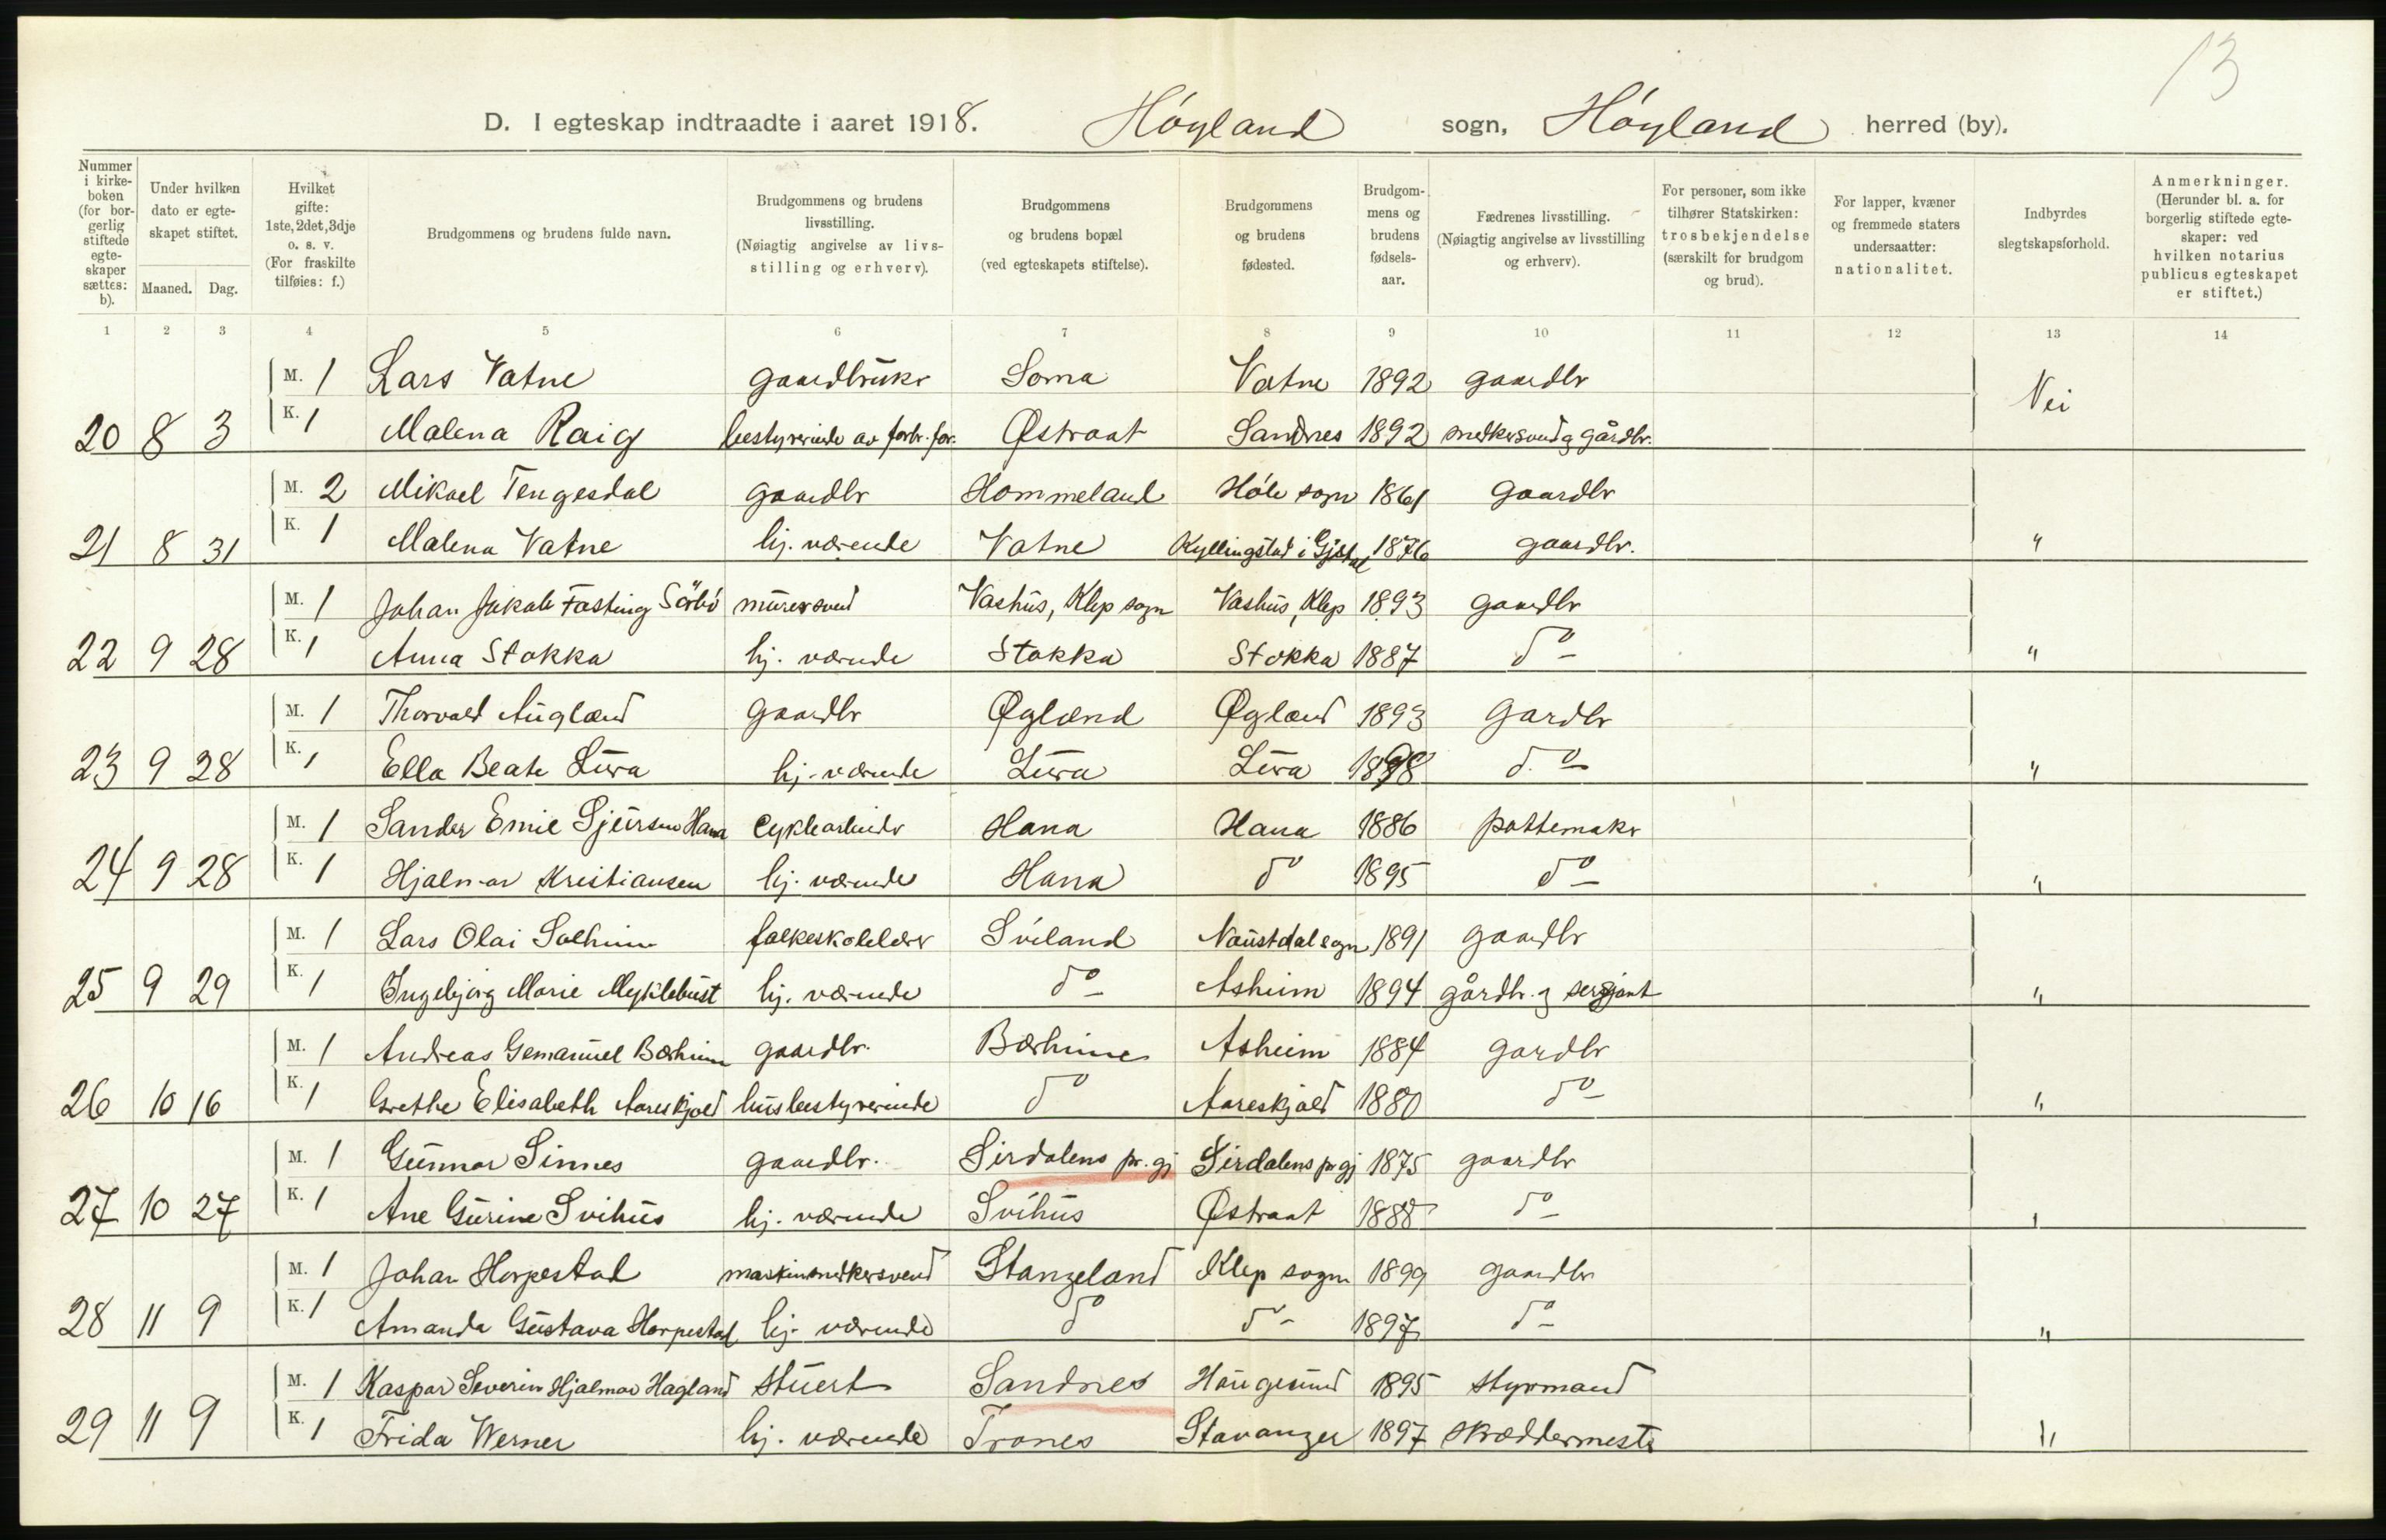 13
D. I egteskap indtraadte i aaret 1918. Høyland sogn, Høyland herred (by).
Nummer i kirke-boken (for bor-gerlig stiftede egte-skaper sættes: b).
Under hvilken dato er egte-skapet stiftet. Maaned. Dag.
Hvilket gifte: 1ste, 2det, 3dje o. s. v. (For fraskilte tilføies: f.)
Brudgommens og brudens fulde navn.
Brudgommens og brudens livsstilling. (Nøiagtig angivelse av livs-stilling og erhverv).
Brudgommens og brudens bopæl (ved egteskapets stiftelse).
Brudgommens og brudens fødested.
Brudgom-mens og brudens fødsels-aar.
Fædrenes livsstilling. (Nøiagtig angivelse av livsstilling og erhverv).
For personer, som ikke tilhører Statskirken: trosbekjendelse (særskilt for brudgom og brud).
For lapper, kvæner og fremmede staters undersaatter: nationalitet.
Indbyrdes slegtskapsforhold.
Anmerkninger. (Herunder bl. a. for borgerlig stiftede egte-skaper: ved hvilken notarius publicus egteskapet er stiftet.)
1 2 3 4 5 6 7 8 9 10 11 12 13 14
M. 1 Lars Vatne gaardbruker Soma Vatne 1892 gaardbr
20 8 3 K. 1 Malena Raig bestyrerinde av forbr. for. Østraat Sandnes 1892 snekersvend g gårdbr. Nei
M. 2 Mikael Tengesdal gaardbr Hommeland Høle sogn 1861 gaardbr
21 8 31 K. 1 Malena Vatne hj. værende Vatne Kyllingstad i Gjesdal 1876 gaardbr. "
M. 1 Johan Jakob Fasting Sørbø murersvend Vashus, Klep sogn Vashus, Klep 1893 gaardbr
22 9 28 K. 1 Anna Stokka hj. værende Stokka Stokka 1887 do "
M. 1 Thorvald Augland gaardbr Øgland Øgland 1893 gardbr
23 9 28 K. 1 Ella Beate Lura hj. værende Lura Lura 1898 d.o "
M. 1 Sander Emil Sjursen Hana Cyklearbeider Hana Hana 1886 pottemaker
24 9 28 K. 1 Hjalmar Kristiansen hj. værende Hana do 1895 do "
M. 1 Lars Olai Solheim folkeskolelærer Sviland Naustdal sogn 1891 gaardbr
25 9 29 K. 1 Ingebjørg Marie Myklebust hj. værende do Asheim 1894 gårdbr. g sersjant "
M. 1 Andreas Gemanuel Bærheim gaardbr. Bærheim Asheim 1884 gardbr
26 10 16 K. 1 Grethe Elisabeth Aareskjold husbestyrerinde do Aareskjold 1880 do "
M. 1 Gunnar Sinnes gaardbr. Sirdalens pr.gj Sirdalens prgj 1875 gaardbr
27 10 27 K. 1 Ane Gurine Svihus hj. værende Svihus Østraat 1888 do "
M. 1 Johan Horpestad maskinsnekersvend Stangeland Klep sogn 1899 gaardbr
28 11 9 K. 1 Amanda Gustava Horpestad hj. værende do do 1897 do "
M. 1 Kaspar Severin Hjalmar Hagland Stuert Sandnes Haugesund 1895 styrmand
29 11 9 K. 1 Frida Werner hj. værende Trones Stavanger 1897 skræddermester "